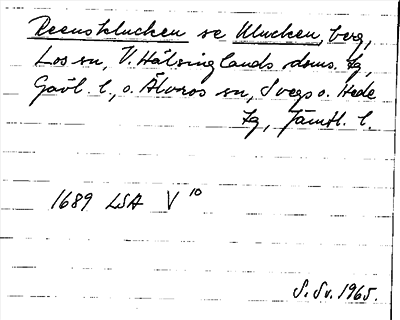 Reensklucken se Klucken, berg,
Los sn, V. Hälsinglands doms. tg,
Gävl. l., o. Älvros sn, Svegs o. Hede
tg, Jämtl. l.
1689 LSA V 10
S. Sv. 1965.